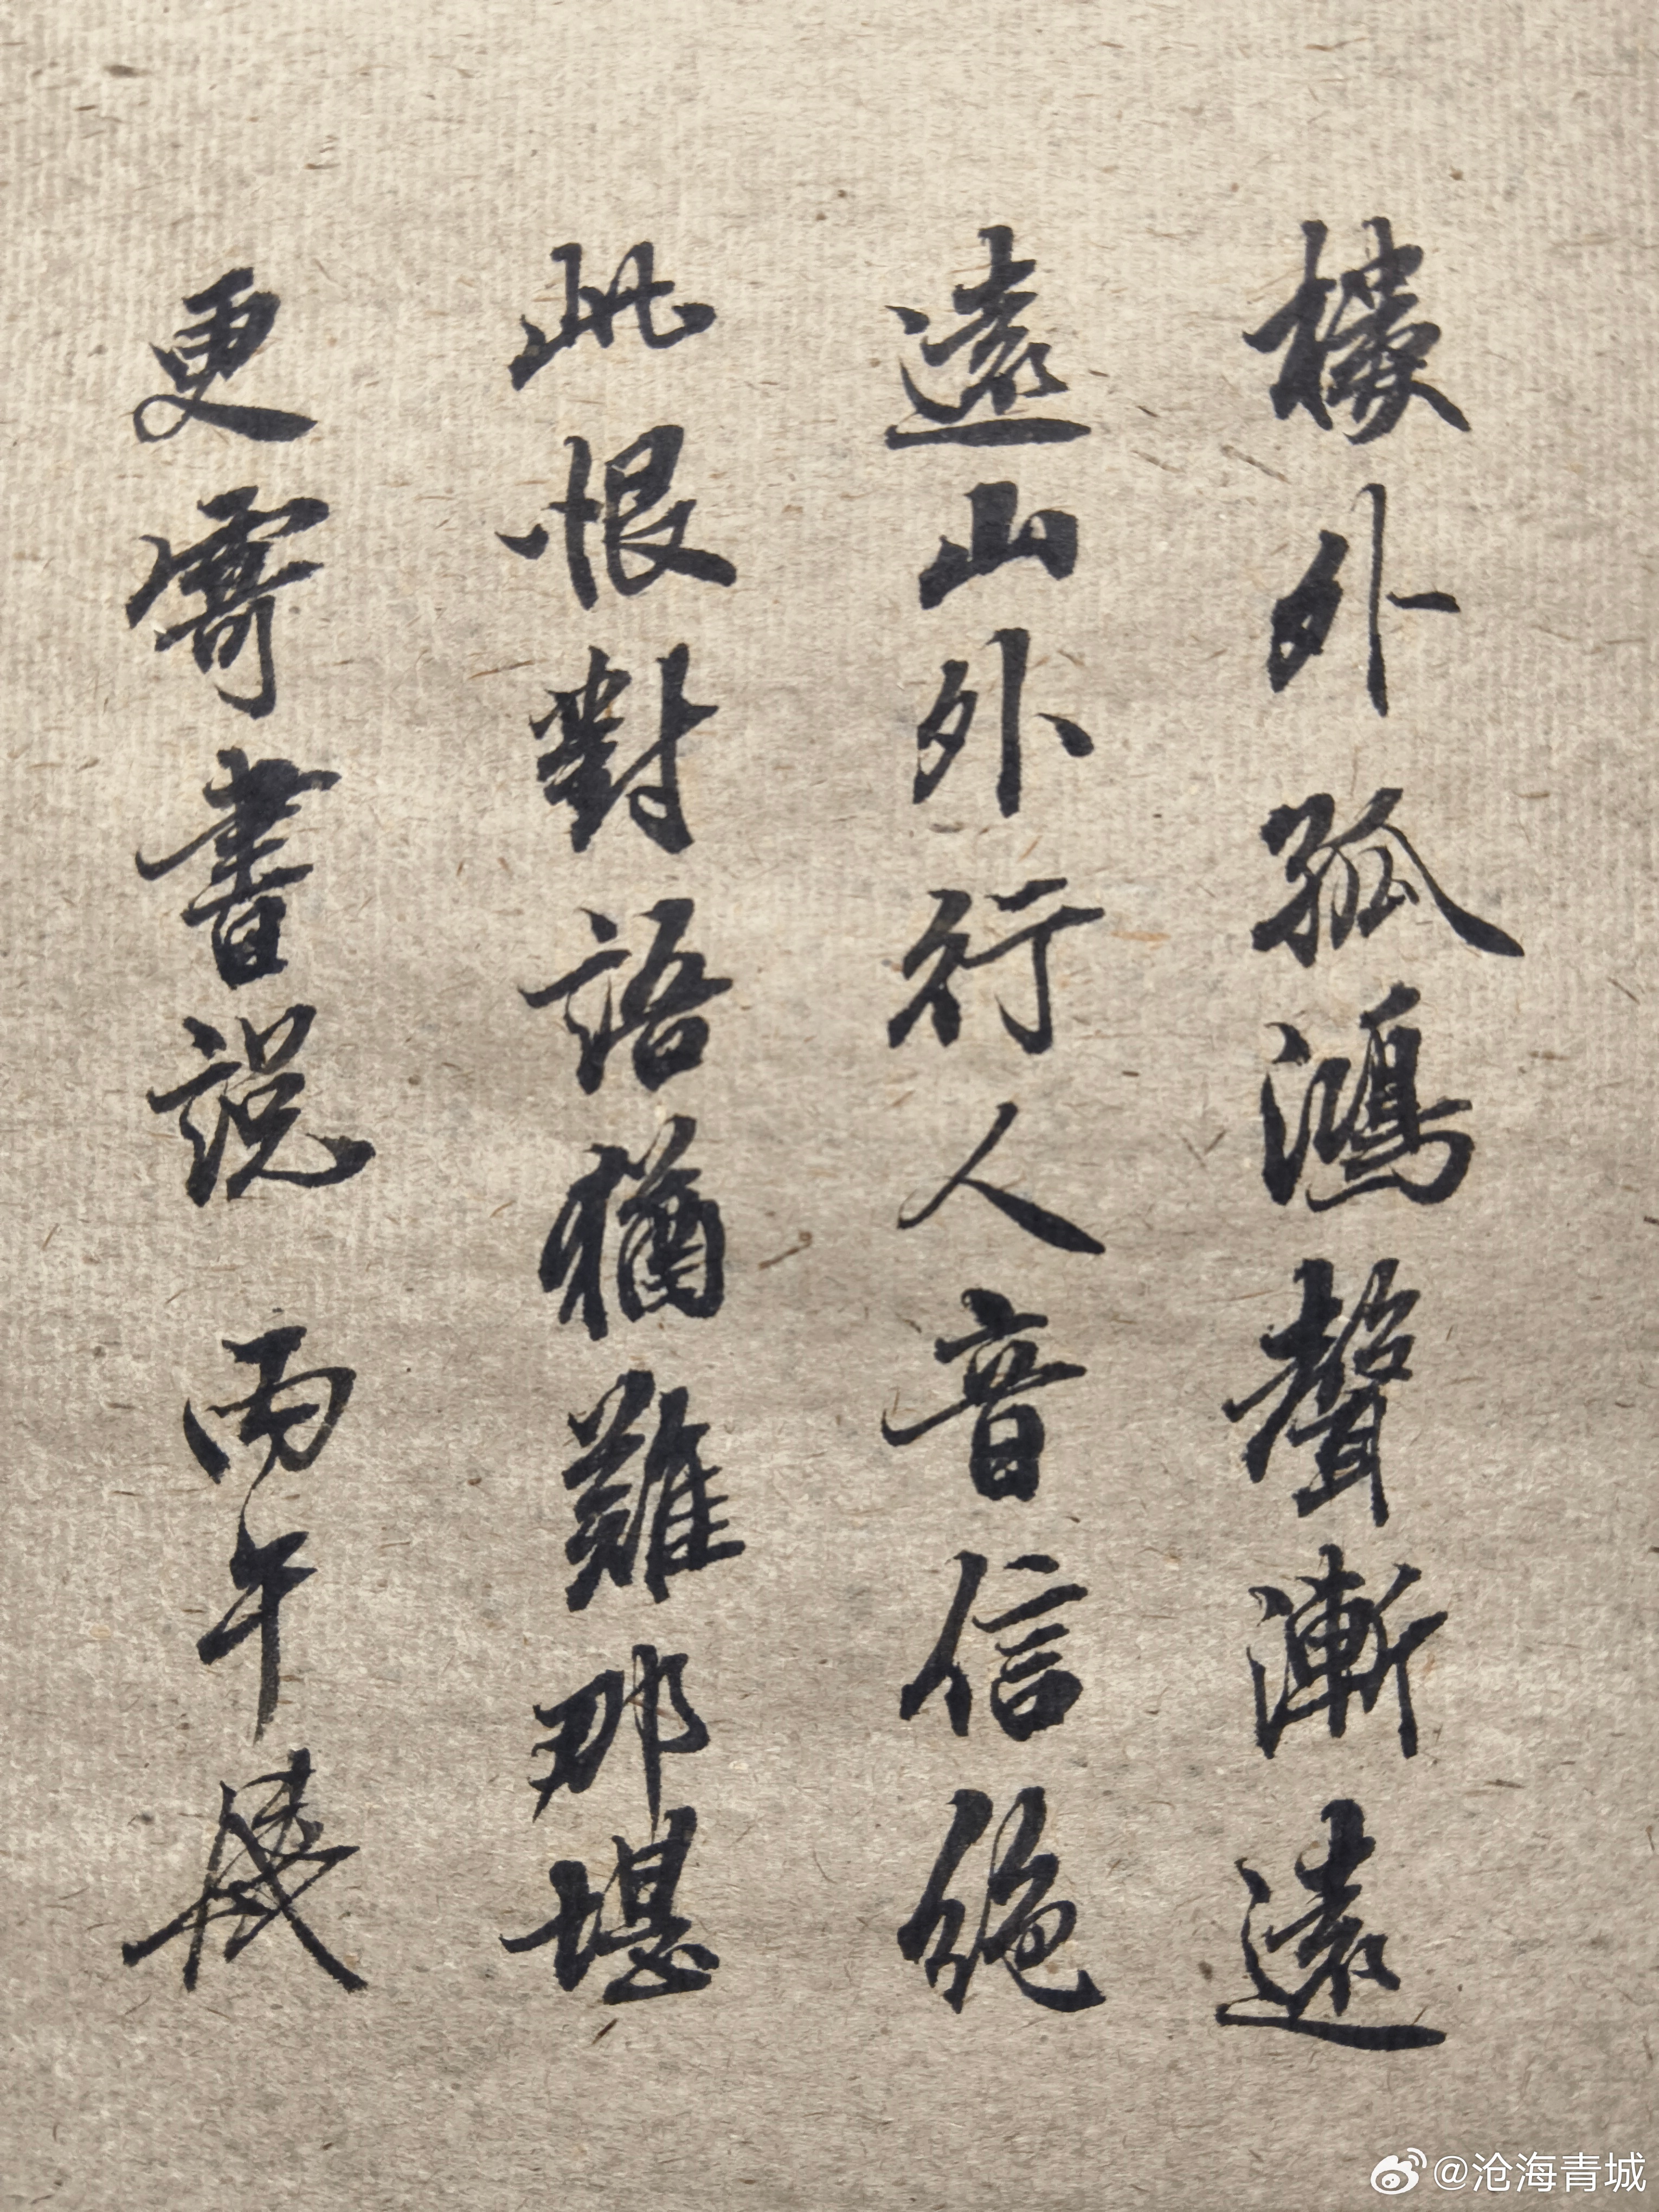 外孤鴻聲漸遠
遠山外行人音信絕
此恨對語猶難那堪
更寄書説 丙午
@沧海青城